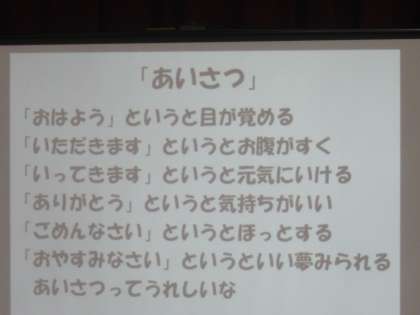 「あいさつ」
「おはよう」というと目が覚める
「いただきます」というとお腹がすく
「いってきます」というと元気にいける
「ありがとう」というと気持ちがいい
「ごめんなさい」というとほっとする
「おやすみなさい」というといい夢みられる
あいさつってうれしいな